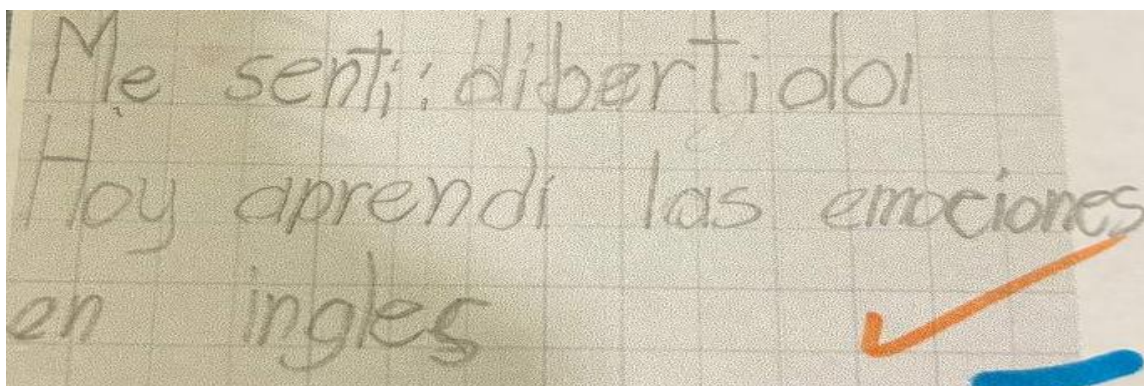 Me senti: dibertida
Hoy aprendi las emociones
en ingles